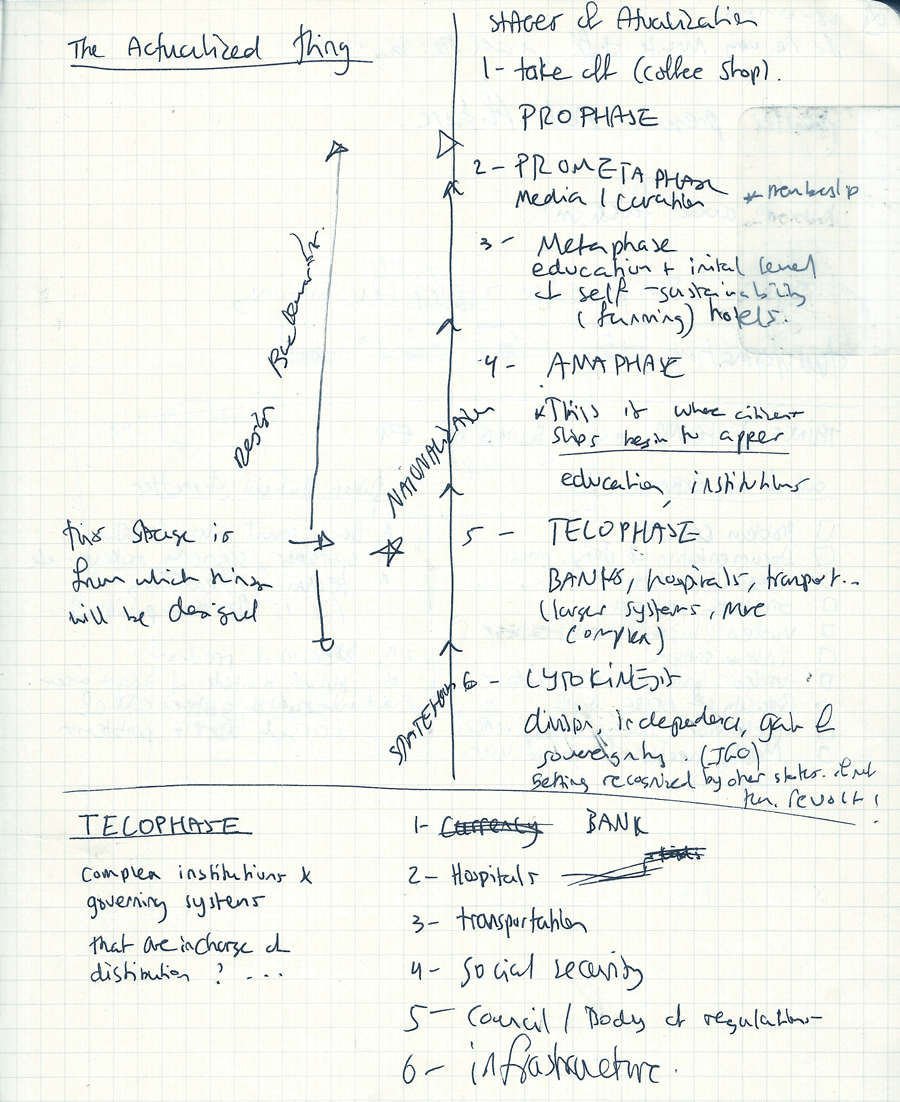 The Actualized thing
Stages of Atualization
1- take off (coffee shop).
PROPHASE
2- PROMETAPHASE
Media / Curation
* membership
3- Metaphase
education + initial level
of self-sustainability
(farming) hotels.
4- ANAPHASE
*This is where citizen
ships begin to apper
education, institutions
NATIONALIZATION
this Stage is
from which things
will be designed
5- TELOPHASE
BANKS, hospitals, transport..
(larger systems, more
complex)
STATEHOOD
6- CYTOKINESIS
division, independence, gain of
sovereignty. (IGO)
Getting recognized by other states. if not
then. revolt!
TELOPHASE
complex institutions &
governing systems
that are incharge of
distribution ? ...
1- Currency BANK
2- Hospitals
3- transportation
4- social security
5- Council / Body of regulations
6- infrastructure.